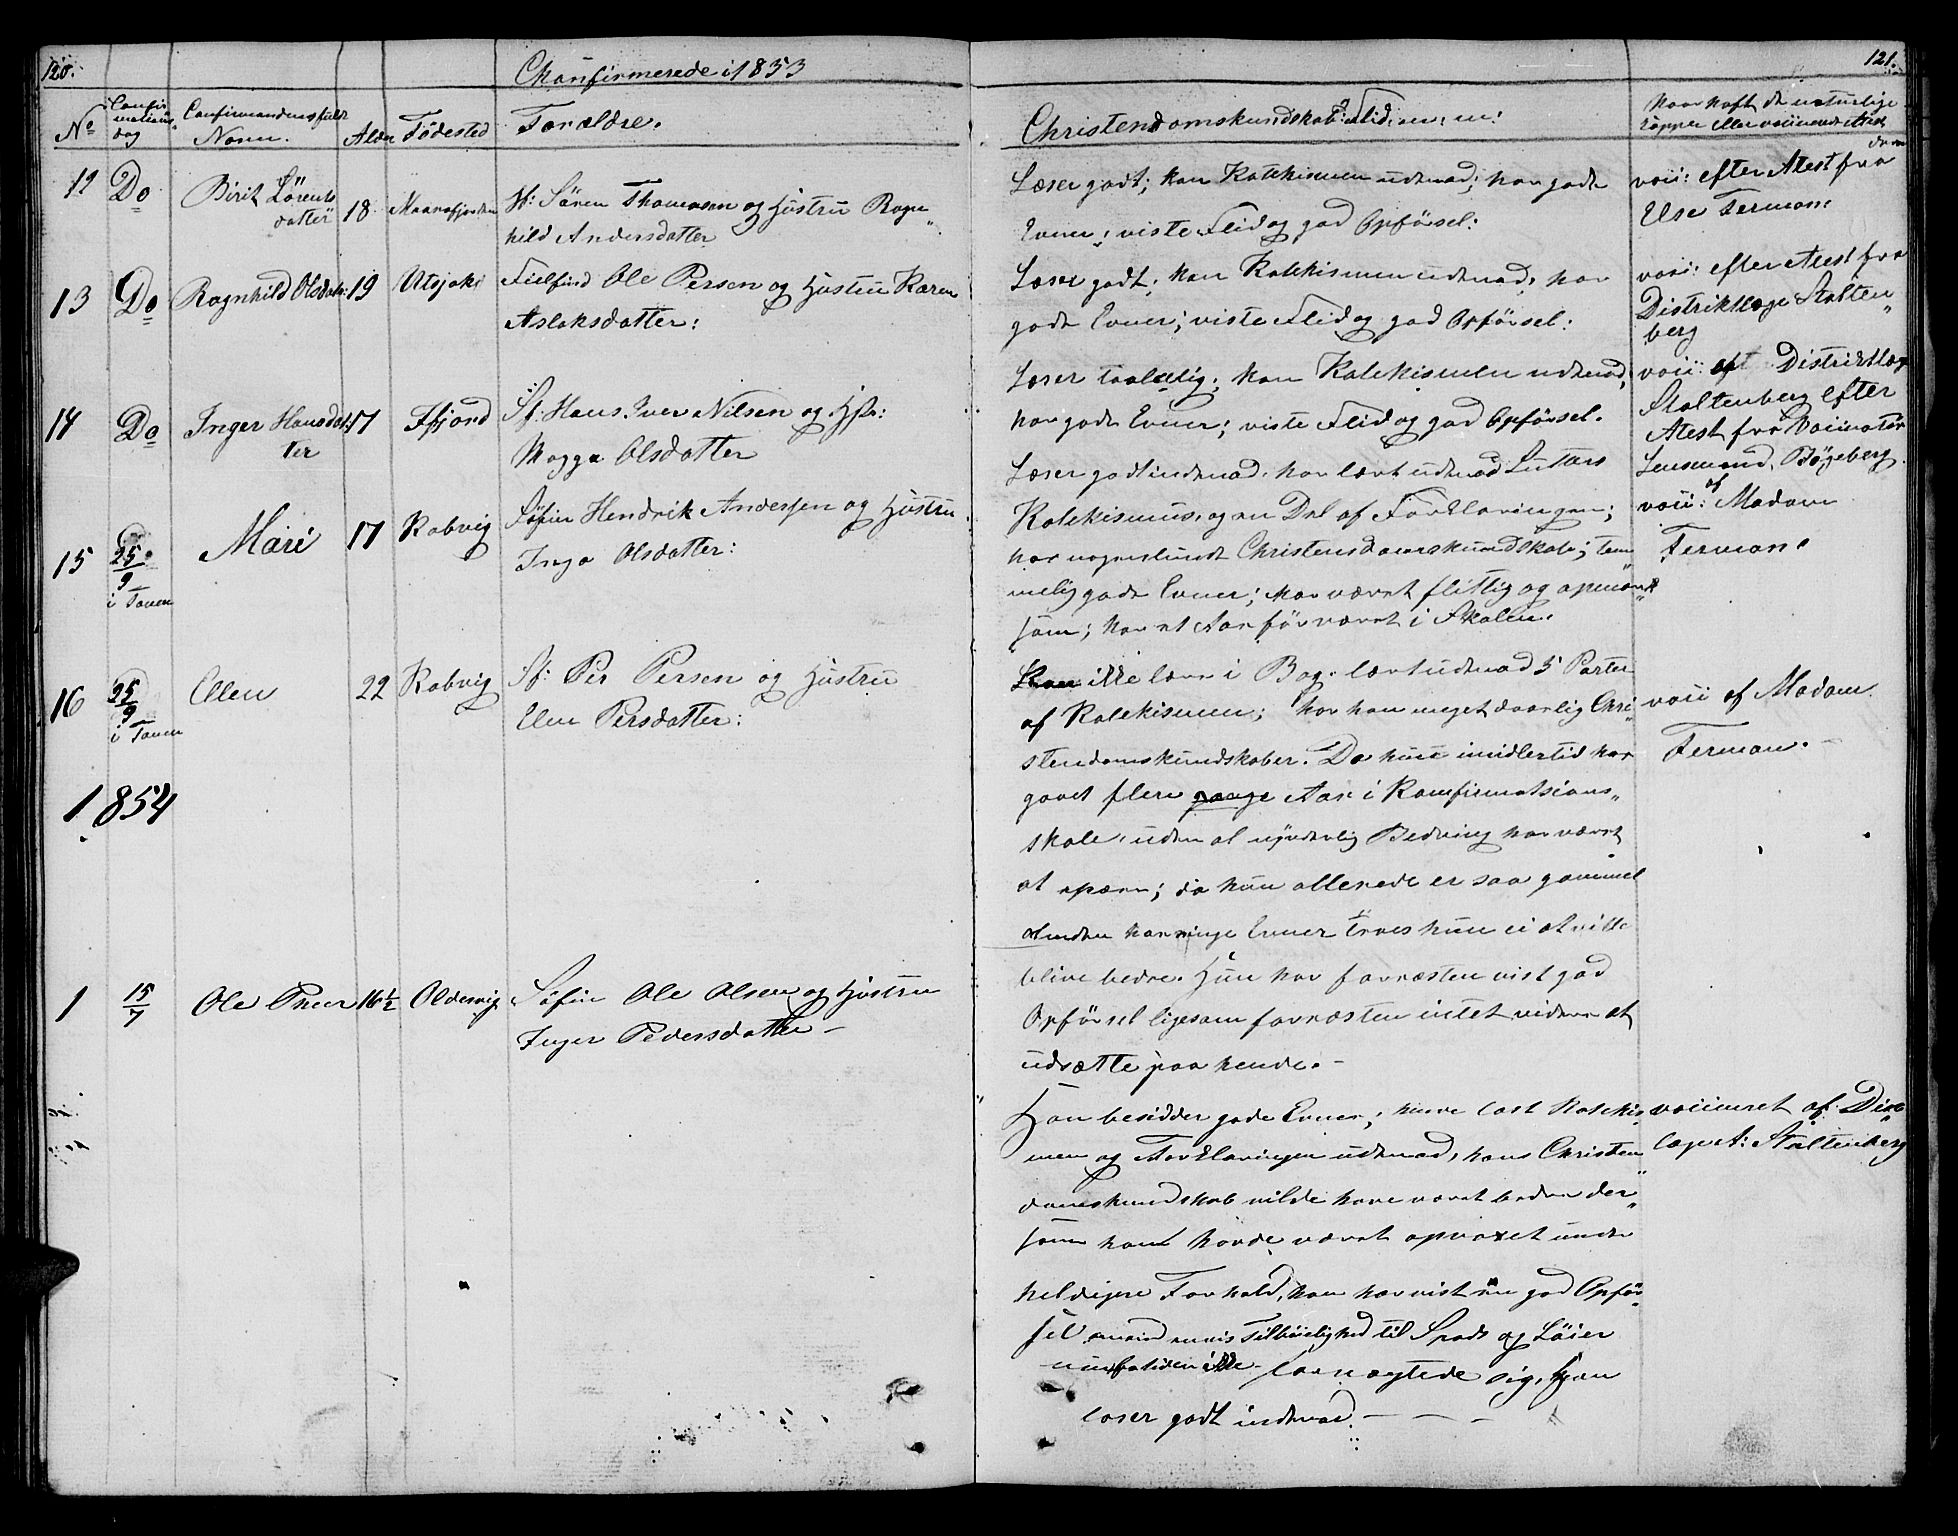 120.
Chonfirmerede i 1853
No
Confir
mations
dag
Confirmandens fulde
Navn.
Alder
Fødested
Forældre.
12 Do Birit Sörens
datter 18 H: Sören Thomasen og Hustru Ragn
hild Andersdatter
13 Do Ragnhild Olsdatr: 19 Utsjoki Fielfind Ole Persen og Hustru Karen
Aslaksdatter:
14 Do Inger Hansdat
ter 17 Sf: Hans Iver Nilsen og Hstr:
Magga Olsdatter
15 25
9
i Tanen Mari 17 Robvig Söfin Hendrik Andersen og Hustru
Inga Olsdatter:
16 25
9
i Tanen Ellen 22 Robvig Sf: Per Persen og Hustru
Elen Persdatter:
1854
1 15
7 Ole 16½ Oldervig Söfin Ole Olsen og Hustru
Inger Pedersdatter –
121.
Christendomskundskab: Flid: m: m:
Naar haft de naturlige
Kopper eller vaccineret
Læser godt; kan Katekismen udenad; har gode
Evner; viste Flid og god Opförsel:
vacc: efter Atest fra
Else Ferman
Læser godt; kan Katekismen udenad; har
gode Evner; viste Flid og god Opförsel:
vacc: efter Atest fra
Distriktlæge Stolten
berg
Læser taalelig; kan Katekismen udenad,
har gode Evner; viste Flid og god Opförsel.
vacc: af Distriktlæge
Stoltenberg efter
Atest fra Vaccinatör
Lensmand, Bögeberg.
Læser godt indenad, har lært udenad Luttars
Katekismus, og en Del af Forklaringen;
har nogenlunde Christendomskundskab; tem
melig gode Evner; har været flittig og opmærk
som; har et Aar för været i Skolen.
vacc: af Madam
Ferman
ikke læse i Bog. lært udenad 5 Parter
af Katekismen; har kun meget daarlig Chri
stendomskundskaber. Da hun imidlertid har
gaaet flere gange Aar i Konfirmatsions
skole, uden at synderlig Bedring har været
at spore; da hun allerede er saa gammel
at uden har ringe Evner troes hun ei at ville
blive bedre. Hun har forresten vist god
Opförsel ligesom forresten intet videre at
udsætte paa hende. –
vacc af Madam
Ferman. –
Han besidder gode Evner; kunde læst Katekis
men og Forklaringen udenad, hans Christen
domskundskab vilde have været bedre der
som han havde været opvoxet under
heldigere Forhold, han har vist en god Opför
sel Tilbøielighed til Spads og Löier
ikke fornægtede sig, Han
læser godt indenad. – – –
vaccineret af Dist
læge A: Stoltenberg